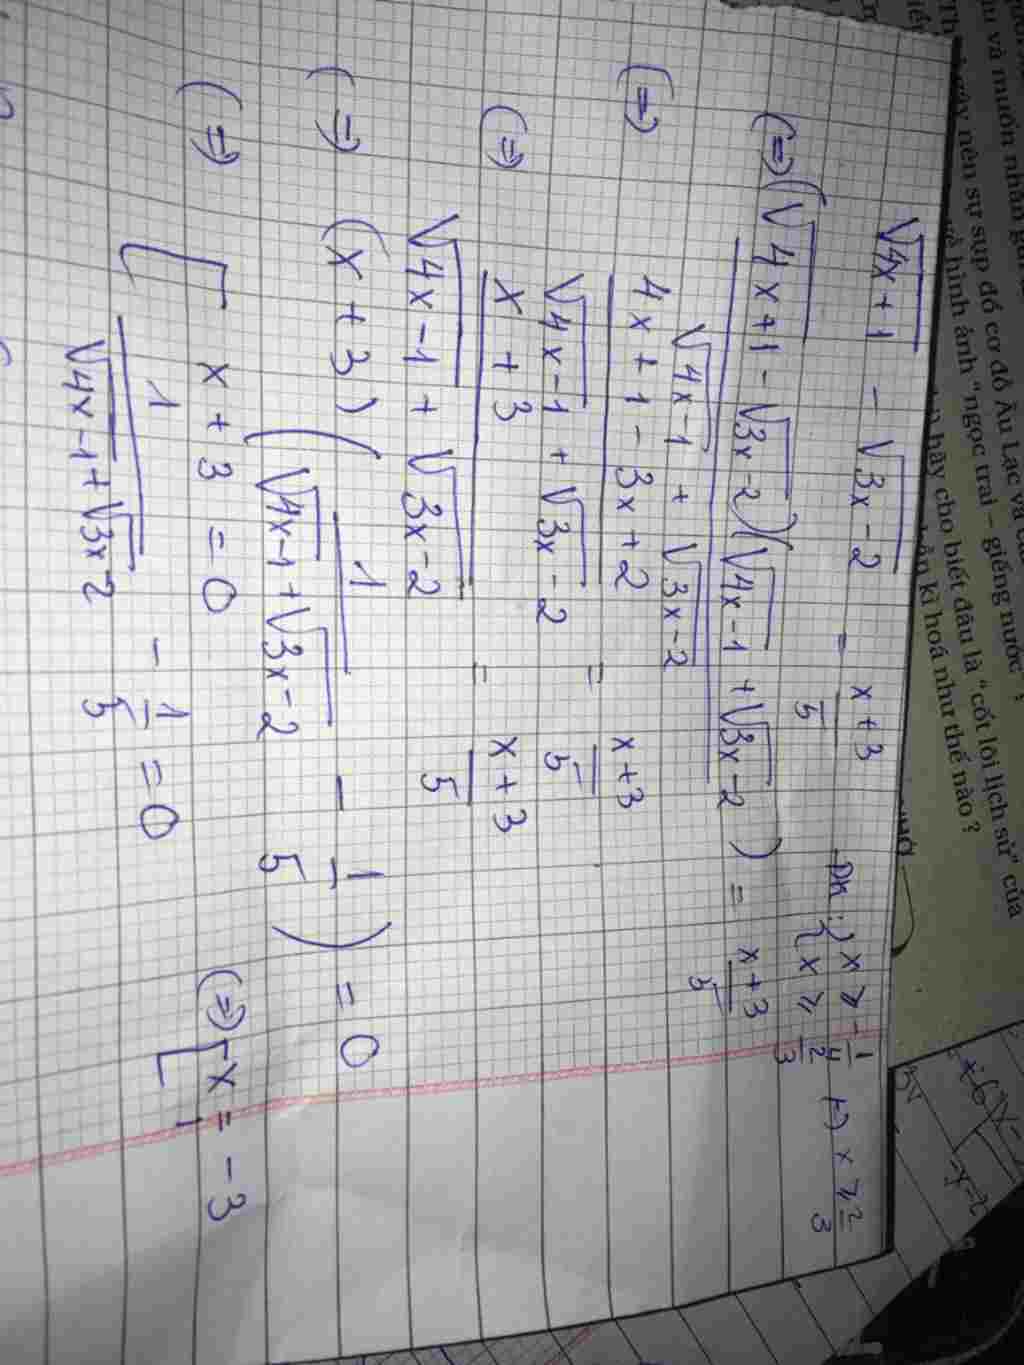 √4x+1 - √3x-2 = x+3/5 ĐK: { x ≥ -1/4 { x ≥ 2/3 (-) x ≥ 2/3
(=) (√4x+1 - √3x-2)(√4x-1 + √3x-2) / √4x-1 + √3x-2 = x+3/5
(=) 4x+1-3x+2 / √4x-1 + √3x-2 = x+3/5
(=) x+3 / √4x-1 + √3x-2 = x+3/5
(=) (x+3) ( 1 / √4x-1 + √3x-2 - 1/5 ) = 0
(=) [ x+3 = 0
1 / √4x-1 + √3x-2 - 1/5 = 0
(=) [ x = -3
và muốn nhận
nên sự sụp đổ cơ đồ Âu Lạc và
về hình ảnh "ngọc trai – giếng nước"?
hãy cho biết đâu là "cốt lõi lịch sử" của
kì hoá như thế nào?